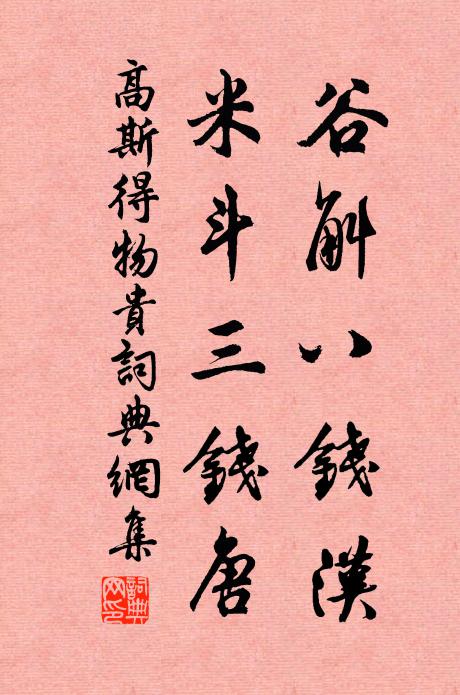 谷斛八錢漢
米斗三錢唐
高斯得物貴詞典網集
詞典網印